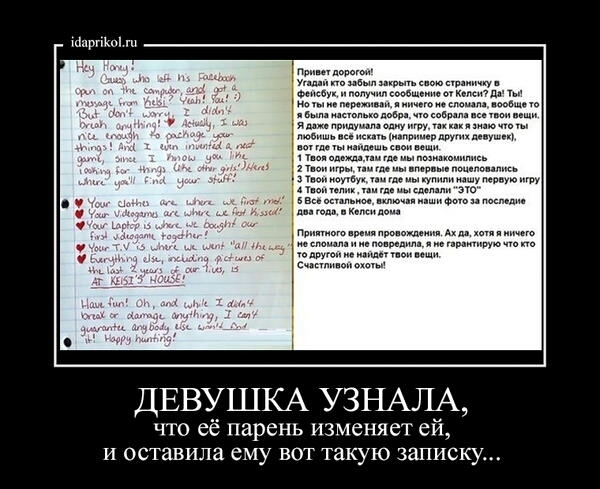 idaprikol.ru
Hey Honey!
Guess who left his Facebook
open on the computer, and got a
message from Keisi? Yeah! You! :)
But don't worry, I didn't
break anything! ♥ Actually, I was
nice enough to package your
things! And I even invented a neat
game, since I know you like
looking for things (like other girls!) Here's
where you'll find your stuff!
♥ Your clothes are where we first met!
♥ Your Videogames are where we first kissed!
♥ Your Laptop is where we bought our
first videogame together!
♥ Your T.V is where we went "all the way"
♥ Everything else, including pictures of
the last 2 years of our lives, is
AT KEISI'S HOUSE!
Have fun! Oh, and while I didn't
break or damage anything, I can't
guarantee anybody else won't find
it! Happy hunting!
Привет дорогой!
Угадай кто забыл закрыть свою страничку в
фейсбук, и получил сообщение от Келси? Да! Ты!
Но ты не переживай, я ничего не сломала, вообще то
я была настолько добра, что собрала все твои вещи.
Я даже придумала одну игру, так как я знаю что ты
любишь всё искать (например других девушек),
вот где ты найдешь свои вещи.
1 Твоя одежда,там где мы познакомились
2 Твои игры, там где мы впервые поцеловались
3 Твой ноутбук, там где мы купили нашу первую игру
4 Твой телик , там где мы сделали "ЭТО"
5 Всё остальное, включая наши фото за последние
два года, в Келси дома
Приятного время провождения. Ах да, хотя я ничего
не сломала и не повредила, я не гарантирую что кто
то другой не найдёт твои вещи.
Счастливой охоты!
ДЕВУШКА УЗНАЛА,
что её парень изменяет ей,
и оставила ему вот такую записку...